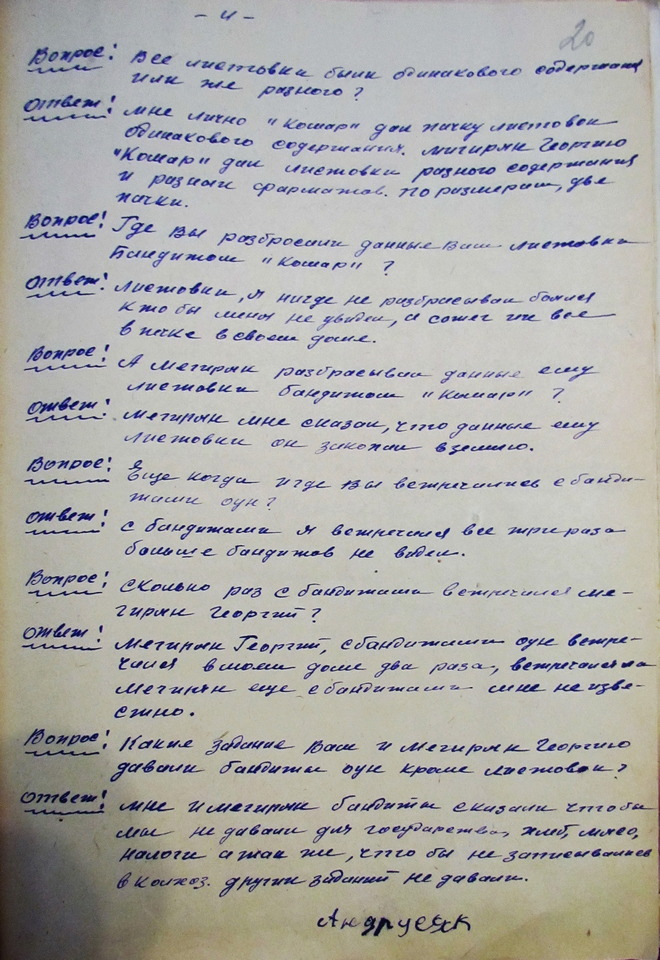 - 4 -
20
Вопрос: Все листовки были одинакового содержания
или же разного?
Ответ: Мне лично "Комар" дал пачку листовок
одинакового содержания. Мигирян Георгию
"Комар" дал листовки разного содержания
и разных форматов. по размерам, две
пачки.
Вопрос: Где Вы разбросали данные Вам листовки
бандитом "Комар"?
Ответ: Листовки, я нигде не разбрасывал боялся
кто бы меня не увидел, а сожег их все
в печке в своем доме.
Вопрос: А Мегирян разбрасывал данные ему
листовки бандитом "Комар"?
Ответ: Мегирян мне сказал, что данные ему
листовки он закопал в землю.
Вопрос: Еще когда и где Вы встречались с банди-
тами оун?
Ответ: С бандитами я встречался все три раза
больше бандитов не видел.
Вопрос: Сколько раз с бандитами встречался Ме-
гирян Георгий?
Ответ: Мегирян Георгий, с бандитами оун встре-
чался в моем доме два раза, встречался ли
Мегирян еще с бандитами мне не изве-
стно.
Вопрос: Какие задание Вам и Мегирян Георгию
давали бандиты оун кроме листовок?
Ответ: Мне и Мегирян бандиты сказали что бы
мы не давали для государства, хлеб, мясо,
налоги а так же, что бы не записывались
в колхоз. других заданий не давали.